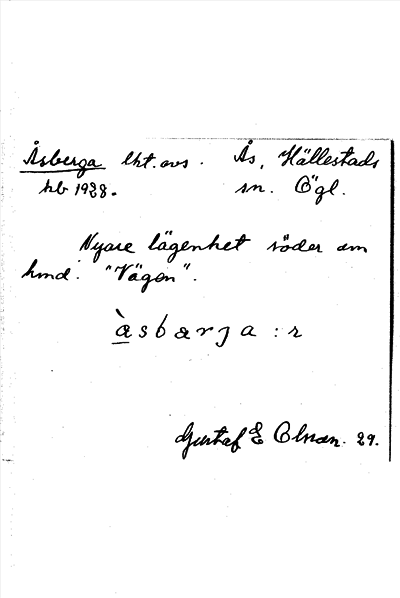 Åsberga lht. avs. Ås, Hällestads
hb 1928. sn. Ögl.
Nyare lägenhet söder om
hmd. "Vägen".
àsbærja:r
Gustaf E Olsson. 29.